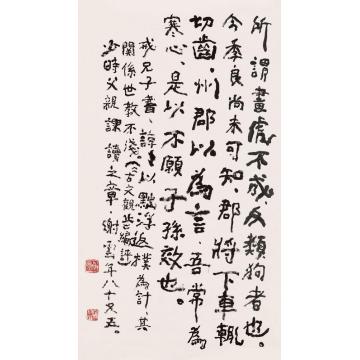 所謂畫虎不成反類狗者也。
今季良尚未可知、郡將下車輒
切齒，州郡以為言，吾常為
寒心，是以不願子孫效也。
戒兄子書，諄諄以黜浮返樸為計，其
關係世教不淺。（《古文觀止》編評）
少時父親課讀之章，謝 年八十又五。